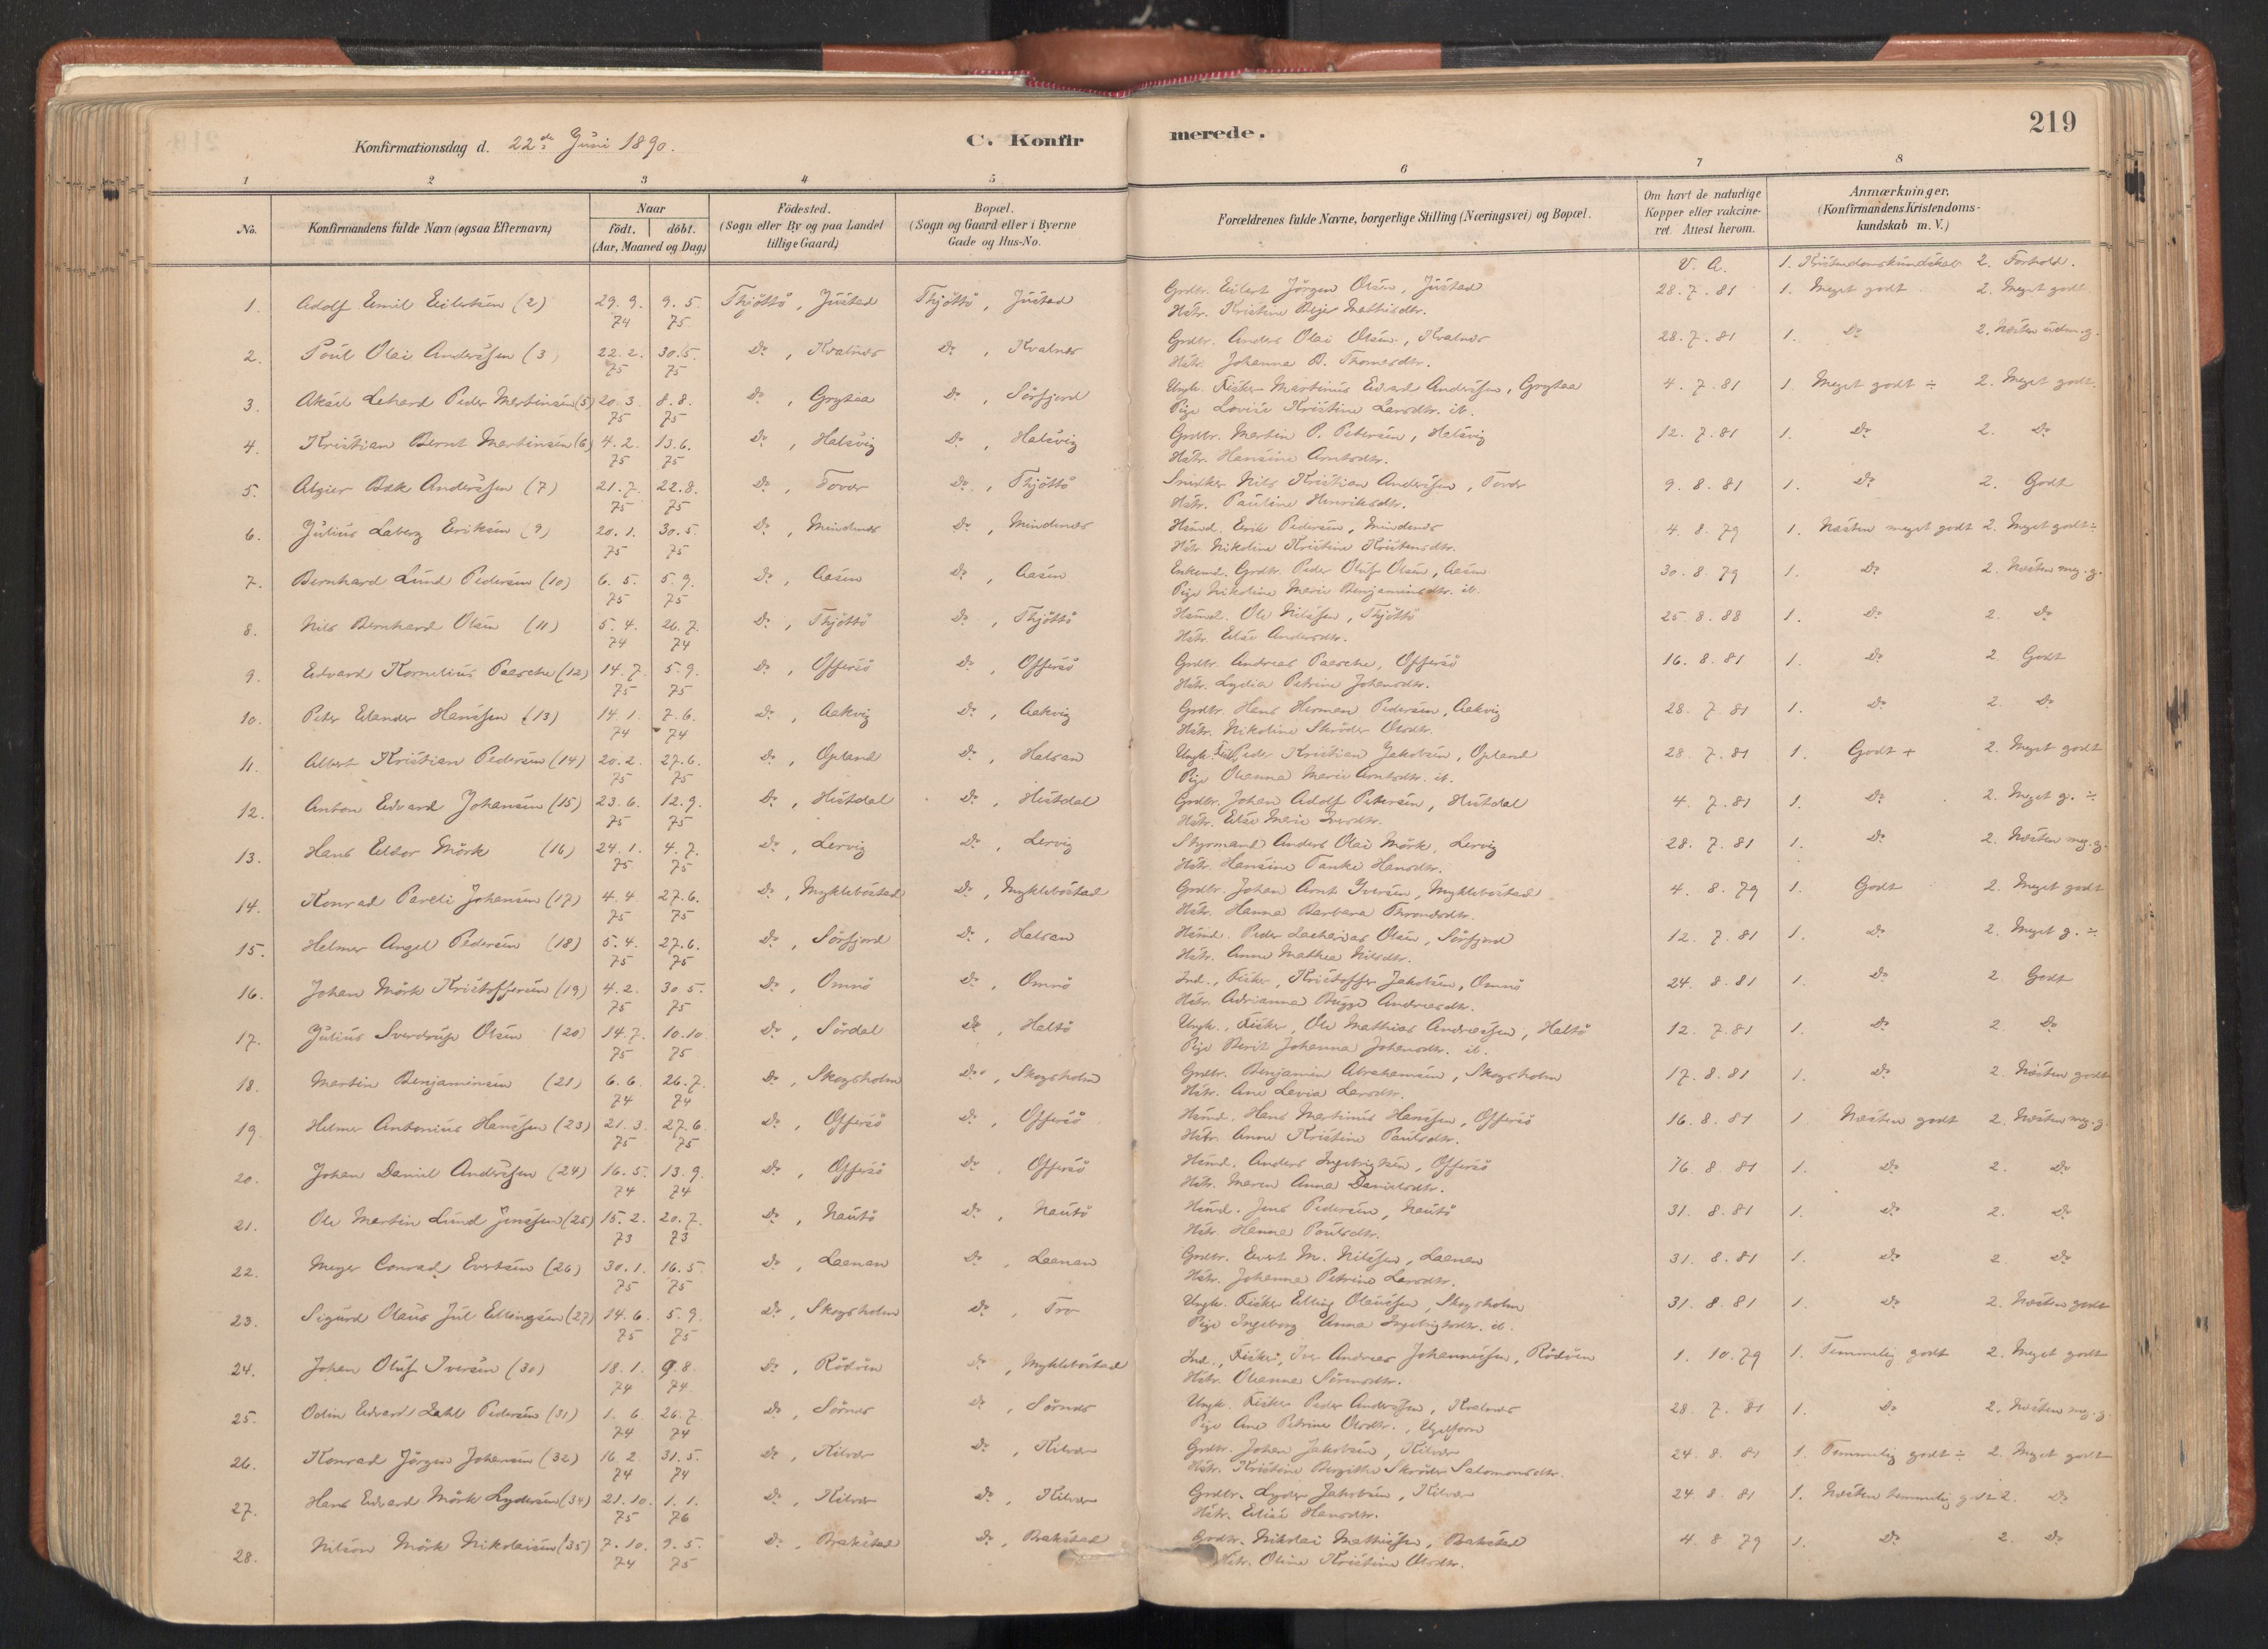 219
Konfirmationsdag d. 22de Juni 1890.
C. Konfirmerede.
1 2 3 4 5 6 7 8
No.
Konfirmandens fulde Navn (ogsaa Efternavn)
Naar
födt. döbt.
(Aar, Maaned og Dag)
Födested.
(Sogn eller By og paa Landet
tillige Gaard)
Bopæl.
(Sogn og Gaard eller i Byerne
Gade og Hus-No.
Forældrenes fulde Navne, borgerlige Stilling (Næringsvei) og Bopæl.
Om havt de naturlige
Kopper eller vakcine-
ret. Attest herom.
Anmærkninger.
(Konfirmandens Kristendoms-
kundskab m. V.)
V. A. 1. Kristendomskundskab 2. Forhold.
1. Adolf Emil Eilertsen (2) 29. 9. 74 9. 5. 75 Thjöttö, Justad Thjöttö, Justad Grdbr. Eilert Jörgen Olsen, Justad 28. 7. 81 1. Meget godt 2. Meget godt
Hstr. Kristine Beje Mathisdtr.
2. Poul Olai Anderssen (3) 22. 2. 75 30. 5. 75 Do, Kvalnes Do, Kvalnes Grdbr. Anders Olai Olsen, Kvalnes 28. 7. 81 1. Do 2. Næsten udm. g.
Hstr. Johanna B. Thomasdtr.
3. Aksel Lehard Peder Martinsen (5) 20. 3. 75 8. 8. 75 Do, Grytaa Do, Sörfjord Ungk. Fisker Martinus Edvard Anderssen, Grytaa 4. 7. 81 1. Meget godt ÷ 2. Meget godt.
Pige Lovise Kristine Larsdtr. ib.
4. Kristian Bernt Martinsen (6) 4. 2. 75 13. 6. 75 Do, Halsvig Do, Halsvig Grdbr. Martin P. Petersen, Halsvig 12. 7. 81 1. Do 2. Do
Hstr. Hansine Arntsdtr.
5. Algier Bak Anderssen (7) 21. 7. 75 22. 8. 75 Do, Tover Do, Thjöttö Snedker Nils Kristian Anderssen, Tover 9. 8. 81 1. Do 2. Godt
Hstr. Pauline Henriksdtr.
6. Julius Laberg Eriksen (9) 20. 1. 75 30. 5. 75 Do, Mindnes Do, Mindnes Husmd. Erik Pedersen, Mindnes 4. 8. 79 1. Næsten meget godt 2. Meget godt ÷
Hstr. Nikoline Kristine Kristensdtr.
7. Bernhard Lund Pedersen (10) 6. 5. 75 5. 9. 75 Do, Aasen Do, Aasen Enkemd. Grdbr. Peder Oluf Olsen, Aasen 30. 8. 79 1. Do 2. Næsten meg. g.
Pige Nikoline Marie Benjaminsdtr. ib.
8. Nils Bernhard Olsen (11) 5. 4. 74 26. 7. 74 Do, Thjöttö Do, Thjöttö Husmd. Ole Nilssen, Thjöttö 25. 8. 88 1. Do 2. Do
Hstr. Else Andersdtr.
9. Edvard Kornelius Paasche (12) 14. 7. 75 5. 9. 75 Do, Offersö Do, Offersö Grdbr. Andreas Paasche, Offersö 16. 8. 81 1. Do 2 Godt
Hstr. Lydia Petrine Johansdtr.
10. Peter Erlander Hanssen (13) 14. 1. 74 7. 6. 74 Do, Aakvig Do, Aakvig Grdbr. Hans Herman Pedersen, Aakvig 28. 7. 81 1. Do 2. Do
Hstr. Nikoline Skröder Olsdtr.
11. Albert Kristian Pedersen (14) 20. 2. 75 27. 6. 75 Do, Opland Do, Halsan Ungk. Fisk. Peder Kristian Jakobsen, Opland 28. 7. 81 1. Godt + 2. Meget godt
Pige Oleanna Marie Arntsdtr. ib.
12. Anton Edvard Johansen (15) 23. 6. 75 12. 9. 75 Do, Hestdal Do, Hestdal Grdbr. Johan Adolf Petersen, Hestdal 4. 7. 81 1. Do 2. Meget g. ÷
Hstr. Else Marie Iversdtr.
13. Hans Eldor Mörk (16) 24. 1. 75 4. 7. 75 Do, Lervig Do, Lervig Styrmand Anders Olai Mörk, Lervig 28. 7. 81 1. Do 2. Næsten meg. g.
Hstr. Hansine Tanke Hansdtr.
14. Konrad Pareli Johansen (17) 4. 4. 75 27. 6. 75 Do, Myklebostad Do, Myklebostad Grdbr. Johan Arnt Iversen, Myklebostad 4. 8. 79 1. Godt 2. Meget godt
Hstr. Hanna Barbara Throndsdtr.
15. Helmer Angel Pedersen (18) 5. 4. 75 27. 6. 75 Do, Sörfjord Do, Halsan Husmd. Peder Zacharias Olsen, Sörfjord 12. 7. 81 1. Do 2. Meget g. ÷
Hstr. Anne Mathea Nilsdtr.
16. Johan Mörk Kristoffersen (19) 4. 2. 75 30 5. 75 Do, Omnö Do, Omnö Ind., Fisker, Kristoffer Jakobsen, Omnö 24. 8. 81 1. Do 2 Godt
Hstr. Adrianna Bugge Andreasdtr.
17. Julius Sverdrup Olsen (20) 14. 7. 75 10. 10 75 Do, Sördal Do, Haltö Ungk., Fisker, Ole Mathias Andreassen, Haltö 12. 7. 81 1. Do 2. Do
Pige Berit Johanna Johansdtr. ib.
18. Martin Benjaminsen (21) 6. 6. 74 26. 7. 74 Do, Skogsholm Do, Skogsholm Grdbr. Benjamin Abrahamsen, Skogsholm 17. 8. 81 1. Do 2. Næsten godt
Hstr. Ane Lavia Larsdtr.
19. Helmer Antonius Hanssen (23) 21. 3. 75 27. 6 75 Do, Offersö Do, Offersö Husmd. Hans Martinus Hanssen, Offersö 16. 8. 81 1 Næsten godt 2. Næsten meg. g
Hstr. Anne Kristine Paulsdtr.
20. Johan Daniel Anderssen (24) 16. 5. 74 13. 9. 74 Do, Offersö Do, Offersö Husmd. Anders Ingebrigtsen, Offersö 16. 8. 81 1. Do 2. Do
Hstr. Maren Anna Danielsdtr.
21. Ole Martin Lund Jenssen (25) 15. 2. 73 20. 7. 73 Do, Nautö Do, Nautö Husmd. Jens Pedersen, Nautö 31. 8. 81 1. Do 2. Do
Hstr. Hanna Poulsdtr.
22. Meyer Conrad Evertsen (26) 30. 1. 75 16. 5. 75 Do, Laanan Do, Laanan Grdbr. Evert M. Nilssen, Laanan 31. 8. 81 1. Do 2 Do
Hstr. Johanna Petrine Larsdtr.
23. Sigurd Olaus Jul Ellingsen (27) 14. 6. 75 5. 9. 75 Do, Skogsholm Do, Tro Ungk. Fisker Elling Olaussen, Skogsholm 31. 8. 81 1. Do 2. Næsten godt
Pige Ingeborg Anna Ingebrigtsdtr. ib.
24. Johan Oluf Iversen (30) 18. 1. 74 9 8. 74 Do, Rödöen Do, Myklebostad Ind., Fisker, Iver Andreas Johannessen, Rödöen 1. 10. 79 1. Temmelig godt 2. Meget godt
Hstr. Oleanna Sörensdtr.
25. Odin Edvard Dahl Pedersen (31) 1. 6. 74 26. 7. 74 Do, Sörnes Do, Sörnes Ungk. Fisker Peder Anderssen, Kvalnes 28. 7. 81 1. Do 2. Næsten meg. g.
Pige Ane Petrine Olsdtr.,
26. Konrad Jörgen Johansen (32) 16. 2. 74 31. 5. 74 Do, Kilvær Do, Kilvær Grdbr. Johan Jakobsen, Kilvær 24. 8. 81 1. Temmelig godt ÷ 2. Meget godt
Hstr. Kristine Bergithe Skröder Salomonsdtr.
27. Hans Edvard Mörk Lydersen (34) 21. 10. 75 1. 1. 76 Do, Kilvær Do, Kilvær Grdbr. Lyder Jakobsen, Kilvær 24. 8. 81 1. Næsten temmelig godt 2. Do
Hstr. Elise Hansdtr.
28. Nilson Mörk Nikolaisen (35) 7. 10. 74 9. 5. 75 Do, Brakstad Do, Brakstad Grdbr. Nikolai Mathissen, Brakstad 4. 8 79 1. Do 2. Do
Hstr. Oline Kristine Olsdtr.